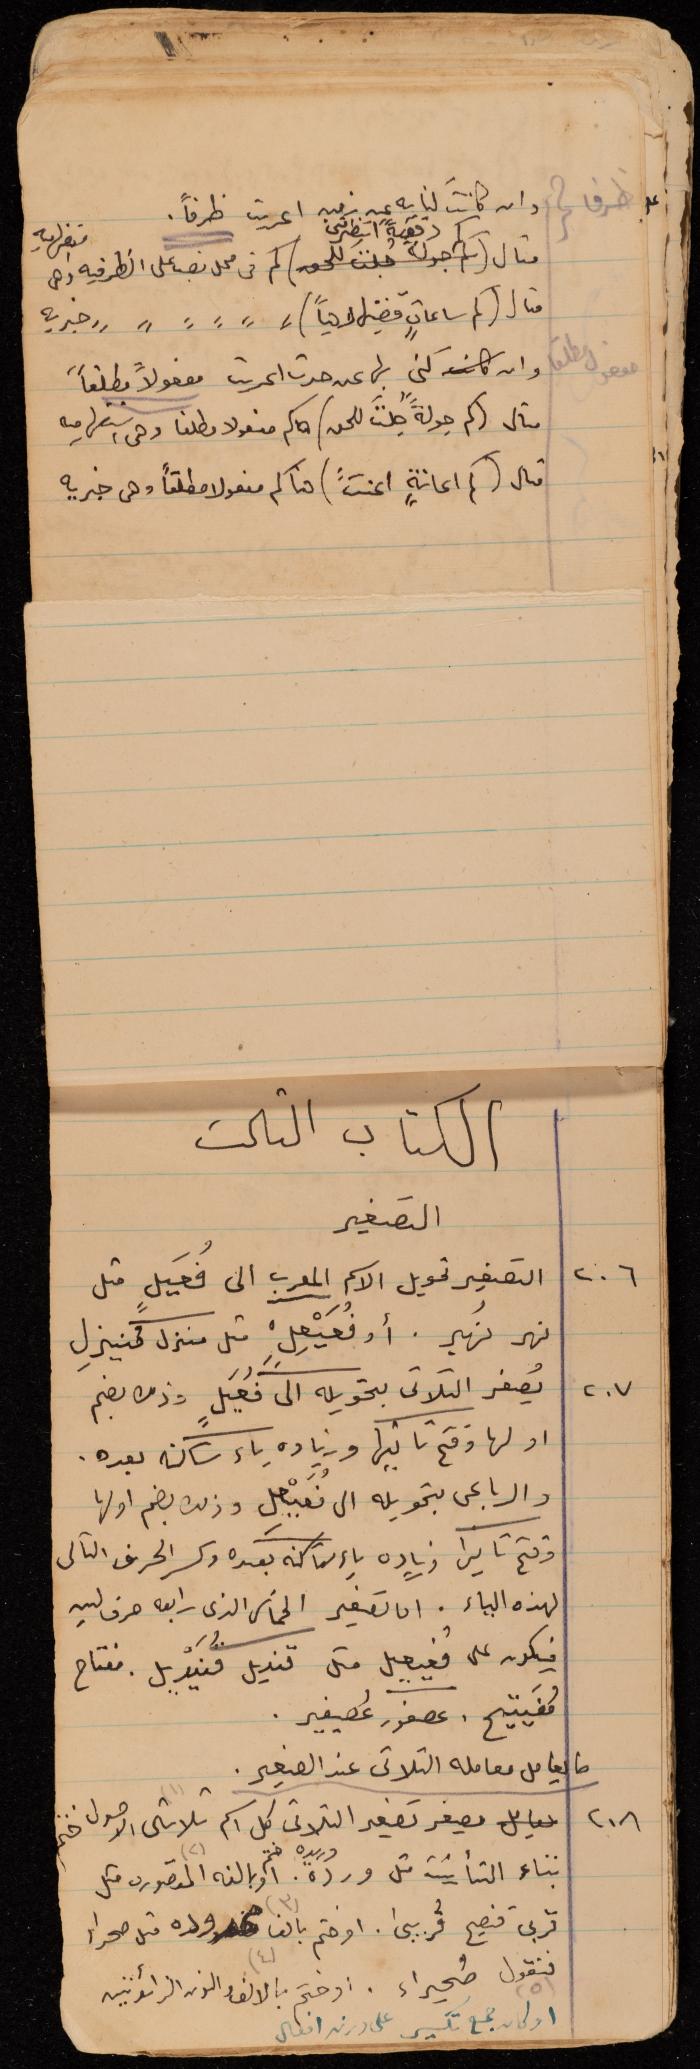 وان كانت كناية عن زمن اعربت ظرفاً .
دقيقةً انتظرتني
مثال (كم جولة جُلتَ للحق) كم فى محل نصب على الظرفيه وهى
مثال (كم ساعاتٍ قضيتَ لاهياً) 〃 〃 〃 〃 〃 〃 خبريه
ظرفا
وان كانت كنى بها عن حدث اعربت مفعولاً مطلقاً
مفعول مطلقا
مثال (كم جولةً جُلتَ للحق) هاكم مفعولا مطلقا وهى استفهاميه
مثال (كم اعانةٍ اعنتَ) هنا كم مفعولا مطلقاً وهى خبريه
الكتاب الثالث
التصغير
٢٠٦ التصغير تحويل الاسم المعرب الى فُعَيلٍ مثل
نهر نُهَير . أو فُعَيْعِلٍ مثل منزل مُنيزِل
٢٠٧ يُصغر الثلاثى بتحويله الى فُعَيلٍ وذلك بضم
اولها وفتح ثانيها وزياده ياء ساكنه بعده .
والرباعى بتحويله الى فُعَيْعِل وذلك بضم اولها
وفتح ثانيها وزياده ياء ساكنه بعده وكسر الحرف التالى
لهذه الياء . اما تصغير الخماسى الذى رابعه حرف لين
فيكون على فُعيعيل مثل قنديل قُنَيْديل . مفتاح
مُفَيتيح . عصفور عُصيفير .
ما يعامل معامله الثلاثى عند التصغير .
٢٠٨ يعامل ويصغر تصغير الثلاثى كل اسم ثلاثى الاصول ختم
(١)
بتاء التأنيث مثل وردة وريده . او ختم بالفه المقصوره مثل
(٢)
قربى فتصبح قُريبى . او ختم بالف ممدوده مثل صحراء
(٣)
فنقول صُحيراء . او ختم بالالف والنون الزائدتين
(٤)
(٥)
او كان جمع تكسير على وزن افعال